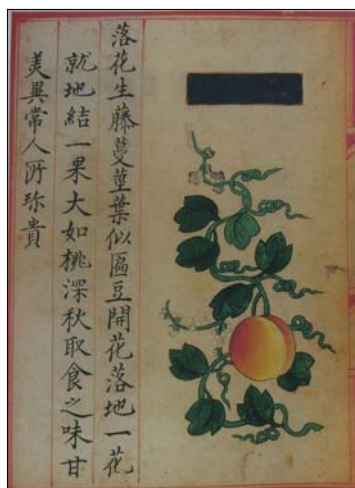 落花生藤蔓莖葉似匾豆開花落地一花
就地結一果大如桃深秋取食之味甘
美異常人所珍貴